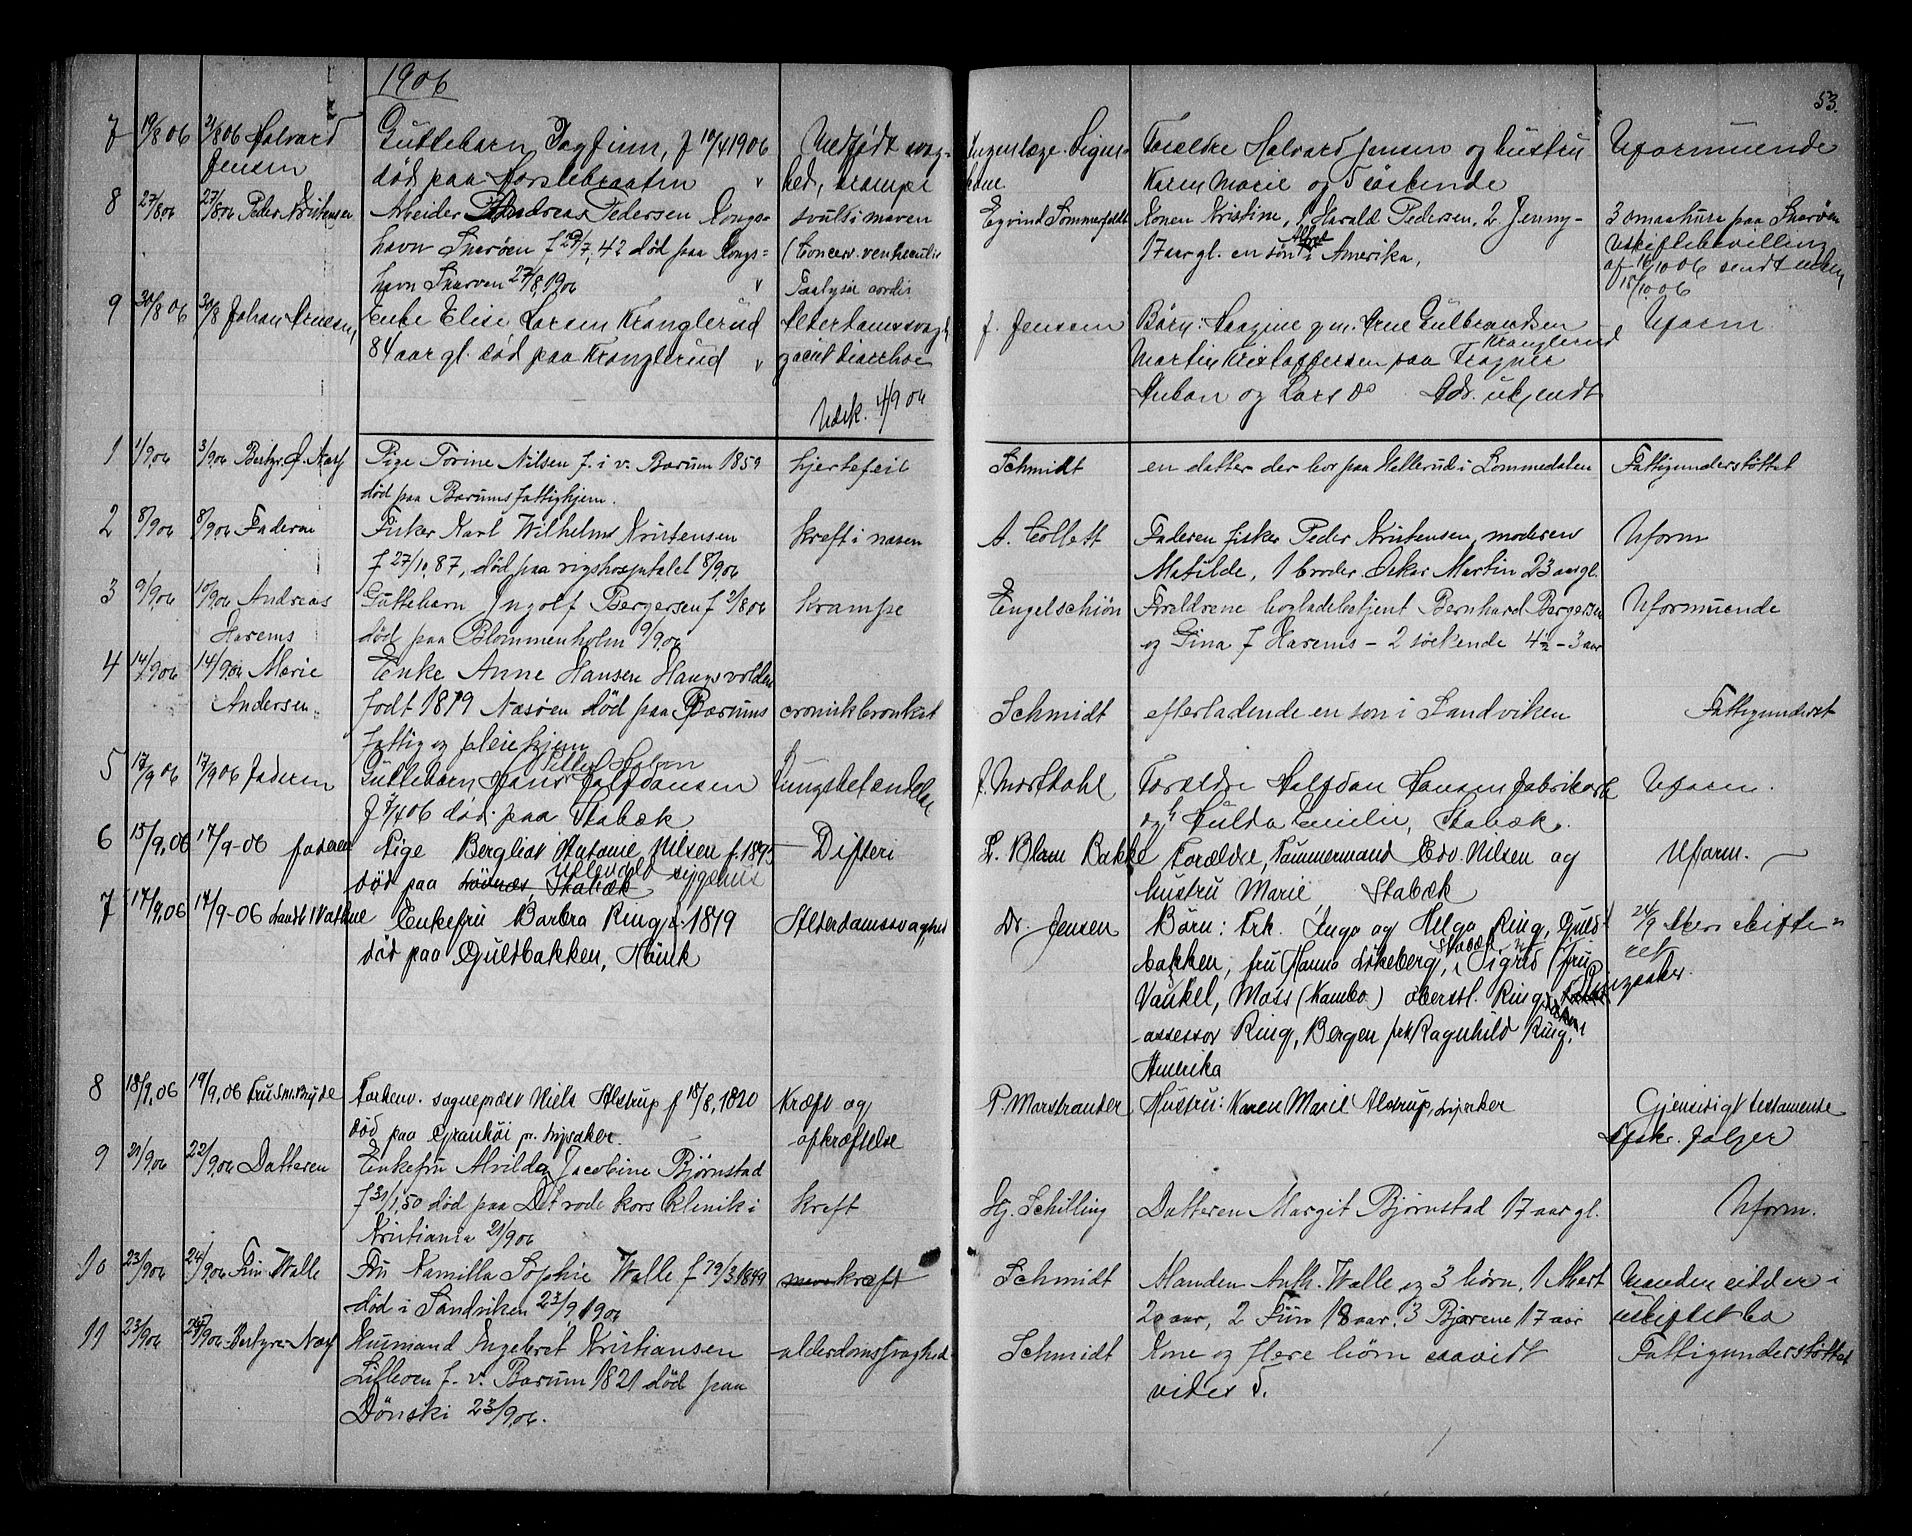 1906
53.
7 19/8 06 21/8 06 Halvard Guttebarn Dagfinn, f 10/4 1906 Medfødt svag- Ingen læge. Forældre Halvard Jensen og hustru Uformuende
Jensen død paa Horslebraaten " hed, krampe Karen Marie og 5 søskende
8 27/8 06 27/8 06 Peder Kristensen Arbeider Andreas Pedersen Kongs- svulst i maven Eyvind Sommerfeldt Konen Kristine, 1 Harald Pedersen, 2 Jenny - 3 smaahuse paa Snarøen
havn Snarøen f 42 død paa Kongs= (Concer. ventriculi 17 aar gl. en søn Alfred i Amerika, Uskiftebevilling
havn Snarøen 27/8 1906 " Paalysis cordis af 16/10 06 sendt
15/10 06
9 30/8 06 30/8 Johan Enke Elise Larsen Kranglerud Alderdomssvagh. J. Jensen Børn: gm. Arne Gulbrandsen Kranglerud Uform.
84 aar gl. død paa Kranglerud " acut diarrhoe Martin Kristoffersen paa Trogner
Anton og Lars do Adr. ukjendt
Udsk. 4/9 06
1 1/9 06 3/9 06 Bestyr. O. Næss Pige Torine Nilsen f. i v. Bærum 1859 hjertefeil Schmidt en datter der bor paa Hellerud i Lommedalen Fattigunderstöttet
død paa Bærums fattighjem.
2 8/9 06 8/9 06 Faderen Fisker Karl Wilhelm Kristensen kreft i næsen A. Collett Faderen fisker Peder Kristensen, moderen Uform
f 27/10 87, död paa rigshospitalet 8/9 06 Matilde, 1 broder Oskar Martin 23 aar gl.
3 9/9 06 10/9 06 Andreas Guttebarn Ingolf Bergersen f 2/8 06 krampe Engelschiøn Foreldrene bogladebetjent Bernhard Bergersen Uformuende
Harems död paa Blommenholm 9/9 06 og Gina f Harems - 2 söskende 4½ - 3 aar
4 14/9 06 14/9 06 Marie Enke Anne Hansen Haugsvolden
Andersen. fodt 1819 Nesöen död paa Bærums cronisk bronkit Schmidt efterladende en søn i Sandviken Fattigunderst
fattig og pleiehjem
5 17/9 06 17/9 06 Faderen Guttebarn Hans Halfdansen Lungebetændelse J. Marstahl Forældre Halfdan Hansen fabrikarb Uform.
f 7/4 06 død paa Stabæk og h Hulda Emilie, Stabæk.
6 15/9 06 17/9-06 faderen Pige Bergliot Antonie Nilsen f. 1895 Difteri L. Blom Bakke Forældre, Tømmermand Edv. Nilsen og Uform.
død paa Løvnæs, Stabæk Ullevold sygehus hustru Marie Stabæk
7 17/9 06 17/9-06 Enkefru Barbra Ring, f. 1819 Alderdomssvaghed Dr. Jensen Børn: Frk. Inga og Helga Ring, Guld- 24/9
død paa Guldbakken, Høvik bakken, fru Hanna Løkeberg, Stabæk, Sigrid (fru
Vankel, Moss (Kambo) oberstl. Ring,
assessor Ring, Bergen frk Ragnhild Ring,
Amerika
8 18/9 06 19/9 06 Fru Forhenv. sognepræst Niels Alstrup f 18/8 1820 Kræft og P. Marstrander Hustru: Karen Marie Alstrup, Lysaker Gjensidigt testamente
død paa Granhöi pr. Lysaker. afkræftelse Afskr. følger
9 21/9 06 22/9 06 Datteren Enkefru Alvilda Jacobine Bjørnstad
f 31/1 50 död paa Det røde kors klinik i kreft Hj. Schilling Datteren Margit Bjørnstad 17 aar gl. Uform.
Kristiania 21/9 06
10 23/9 06 24/9 06 Finn Walle Fru Kamilla Sophie Walle f 1849 kræft Schmidt Manden Anth. Walle og 3 børn, 1 Albert Manden sidder i
död i Sandviken 23/9 1906 20 aar, 2 Finn 18 aar, 3 Bjarne 17 aar uskiftet bo
11 23/9 06 25/9 06 Bestyrer Næss Husmand Ingebret Kristiansen alderdomssvaghed Schmidt Kone og flere börn saavidt Fattigunderstöttet
f. v. Bærum 1821 död paa vides d.
Dönski 23/9 06.